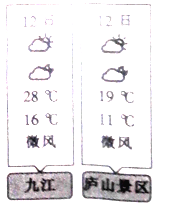 12日
28 ℃
16 ℃
微风
九江
12日
19 ℃
11 ℃
微风
庐山景区